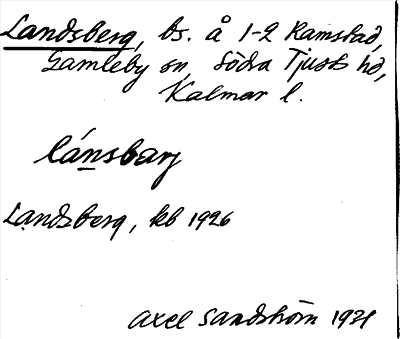 Landsberg, bs. å 1-2 Ramstad,
Gamleby sn, Södra Tjust hd,
Kalmar l.
lánsbarj
Landsberg, kb 1926
Axel Sandström 1931